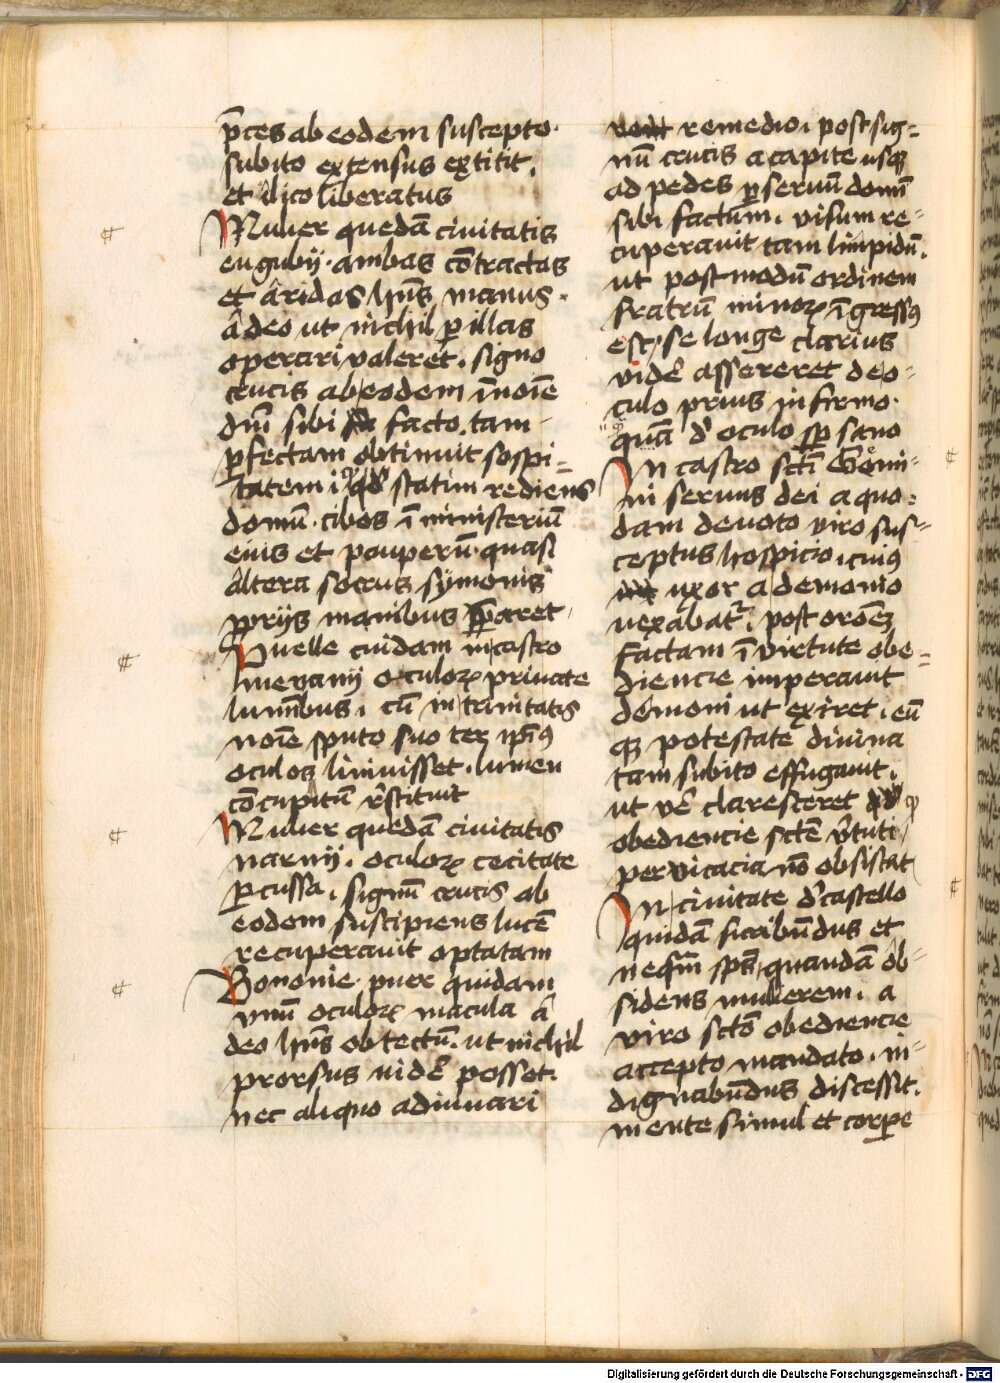 p̄ces ab eodem suscepto·
subito extensus extitit.
et ilico liberatus
Mulier quedā ciuitatis
eugubij· ambas cōtractas
et aridas hn̄s manus·
adeo ut nichil per illas
operari valeret. signo
crucis ab eodem ī noīe
dnī sibi facto, tam
perfectam obtinuit sospi-
tatem, qd statim rediens
domū· cibos ī ministeriū
eius et pauperū quasi
altera socrus symonis
proprijs manibus p̄pararet,
Puelle cuidam in castro
meuanij oculorꝝ priuate
luminibus, cū in trinitatis
noīe sputo suo ter ip̄iꝰ
oculos liniuisset. lumen
cōcupitū restituit
Mulier quedā ciuitatis
narnij. oculorꝝ cecitate
percussa, signū crucis ab
eodem suscipiens lucē
recuperauit optatam
Bononie puer quidam
vnū oculorꝝ macula a
deo hn̄s obtectū. ut nichil
prorsus uidere posset.
nec aliquo adiuuari
remedio, post sig-
nū crucis a capite usqꝫ
ad pedes per seruū domī
sibi factum. visum re-
cuperauit tam limpidū.
ut postmodū ordinem
fratrū minorꝝ īgressꝰ
est, se longe clarius
videre assereret de o-
culo prius infirmo·
quā de oculo semper sano
In castro scti Gemi-
ni seruus dei a quo-
dam deuoto viro sus-
ceptus hospicio, cuiꝰ
uxor a demonio
uexabatur, post oroēꝫ
factam ī virtute obe-
diencie imperauit
demoni ut exiret. eū
qꝫ potestate diuina
tam subito effugauit.
ut vere claresceret qꝫ
obediencie scte virtuti
peruicacia nō obsistat
In ciuitate de castello
quidā furibūdus et
neqm̄ sp̄s, quandā ob-
sidens mulierem. a
viro scto obediencie
accepto mandato, in-
dignabūdus discessit.
mente simul et corpe
Digitalisierung gefördert durch die Deutsche Forschungsgemeinschaft - DFG